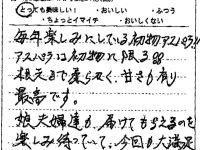 とっても美味しい!・おいしい・ふつう
・ちょっとイマイチ・おいしくない
毎年楽しみにしている初物アスパラ!!
アスパラは初物に限る。
根元まで柔らかく、甘さも有り
最高です。
娘夫婦達も、届けてもらえるのを
楽しみ待っていて、今回も大満足